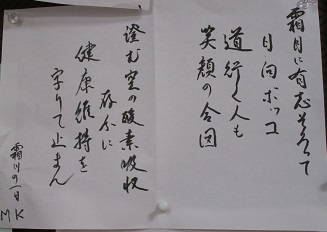 霜月に有志そろて
日向ボッコ
道行く人も
笑顔の合図
澄む空の酸素吸収
存分に
健康維持を
守りて止まん
霜月の一日
MK